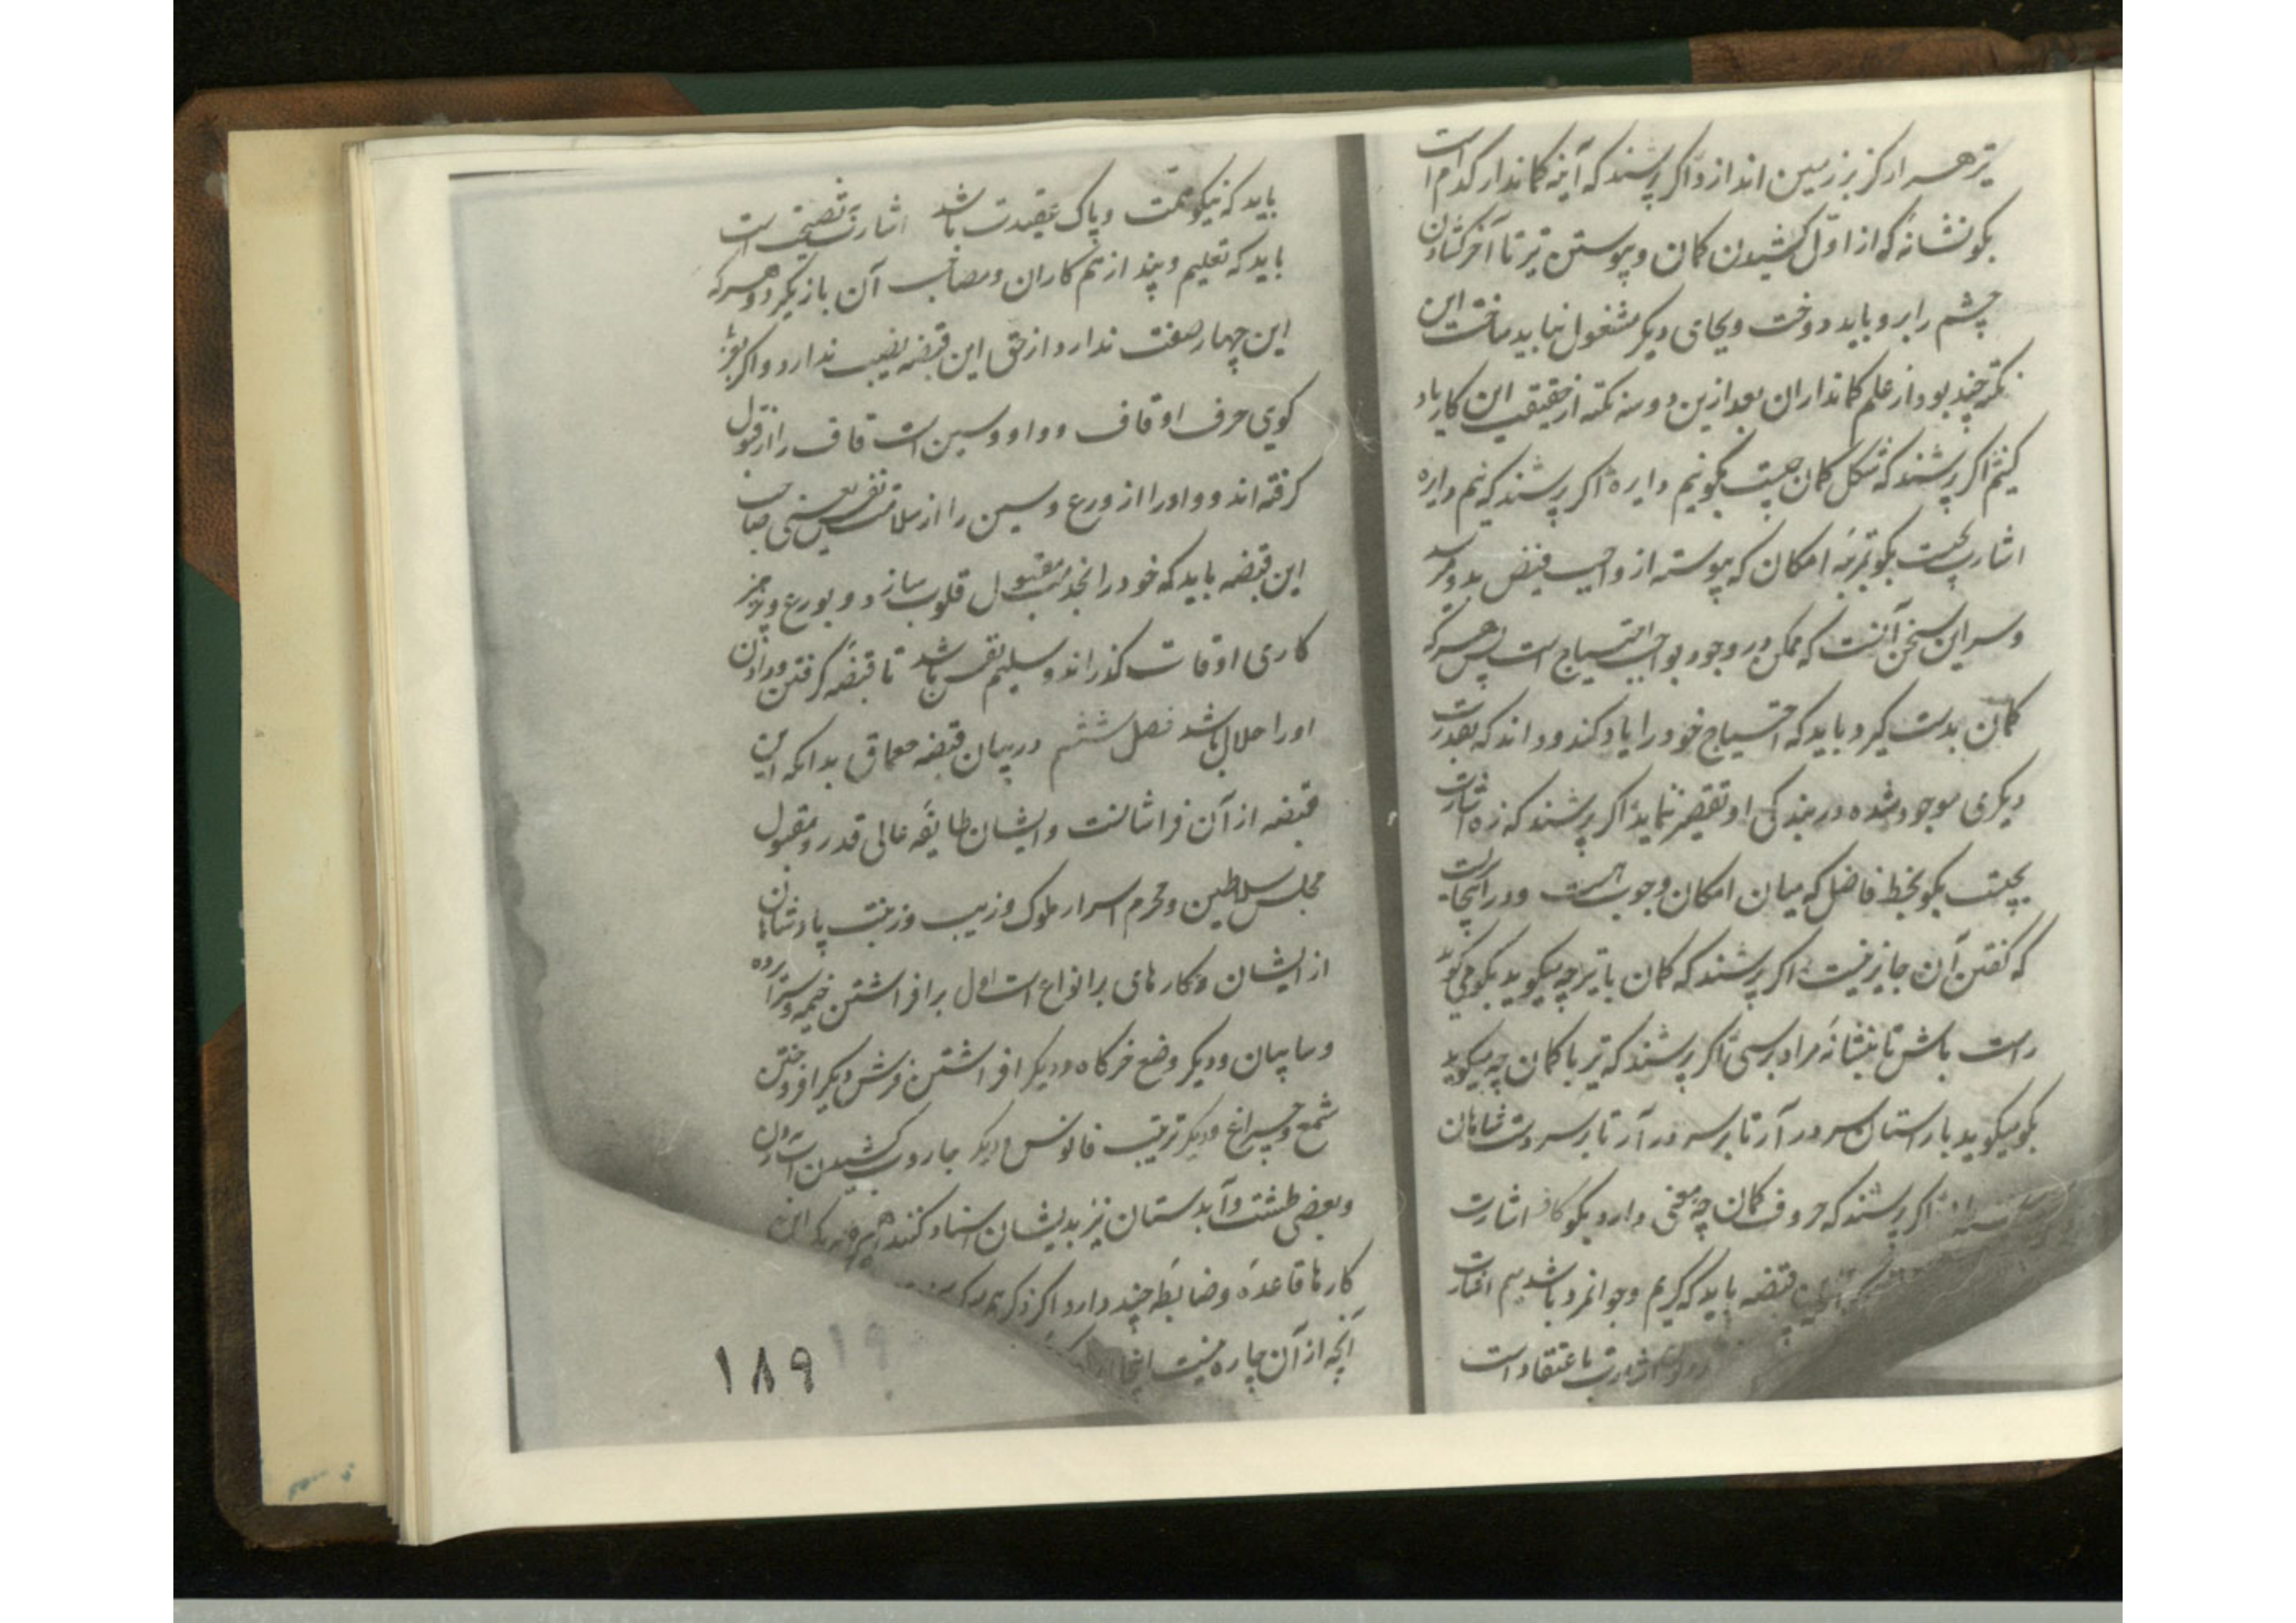 تیر هر ارکز بر زمین اندازد اگر پرسند که آینه کماندار کدام است
بگو نشانه که از اول کشیدن کمان و پیوستن تیر تا آخر گشادن
چشم را برو باید دوخت و بجای دیگر مشغول نباید ساخت این
نکته چند بود از علم کمانداران بعد ازین دو سه نکته از حقیقت این کار یاد
کنیم اگر پرسند که شکل کمان چیست بگو نیم دایره اگر پرسند که نیم دایره
اشارت بچیست بگو بمرتبه امکان که پیوسته از واجب فیض بدو میرسد
و سر این سخن آنست که ممکن در وجود بواجب احتیاج است پس هر که
کمان بدست گیرد باید که احتیاج خود را یاد کند و داند که بقدرت
دیگری موجود شده در بندگی او تقصیر ننماید اگر پرسند که زه اشارت
بچیست بگو بخط فاضل که میان امکان و وجوب است و در اینجا سریست
که گفتن آن جایز نیست اگر پرسند که کمان با تیر چه میگوید بگو می گوید
راست باش تا بنشانه مراد برسی اگر پرسند که تیر با کمان چه میگوید
بگو میگوید با راستان سر در آر تا بر سر در آر تا بر سر دست شاهان
اگر پرسند که حروف کمان چه معنی دارد بگو کاف اشارت
این قبضه باید که کریم و جوانمرد باشد میم اشارت
اشارت باعتقاد است
باید که نیکو همت و پاک عقیدت باشد اشارت نصیحت است
باید که تعلیم و پند از هم کاران و مصاحب آن باز نگیرد و هر که
این چهار صفت ندارد از حق این قبضه نصیب ندارد و اگر
کوی حرف او قاف و واو و سین است قاف را از قبول
گرفته اند و واو را از ورع و سین را از سلامت نفس یعنی صاحب
این قبضه باید که خود را بخدمت مقبول قلوب سازد و بورع و پرهیز
کاری اوقات گذراند و سلیم نفس باشد تا قبضه گرفتن و دادن
او را حلال باشد فصل ششم در بیان قبضه معماق بدانکه این
قبضه از آن فراشانست و ایشان طایفه عالی قدر و مقبول
مجلس سلاطین و محرم اسرار ملوک و زیب و زینت پادشاهان
از ایشان و کار های بر انواع است اول بر افراشتن خیمه و سراپرده
و سایبان و دیگر وضع خرگاه و دیگر افراشتن فرش دیگر افروختن
شمع و چراغ و دیگر ترتیب فانوس و دیگر جاروب کشیدن است
و بعضی طشت و آبدستان نیز بدیشان اسناد کنند
کارها قاعده و ضابطه چند دارد اگر ذکر
آنچه از آن چاره نیست اینجا
۱۸۹